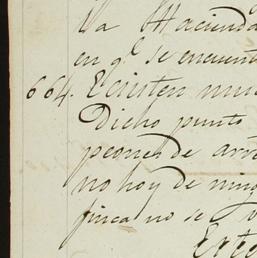 La Hacienda
en q.e se encuent
664. Ecsisten mu
Dicho punto
peones de arr
no hoy de nin
finca no se
Este